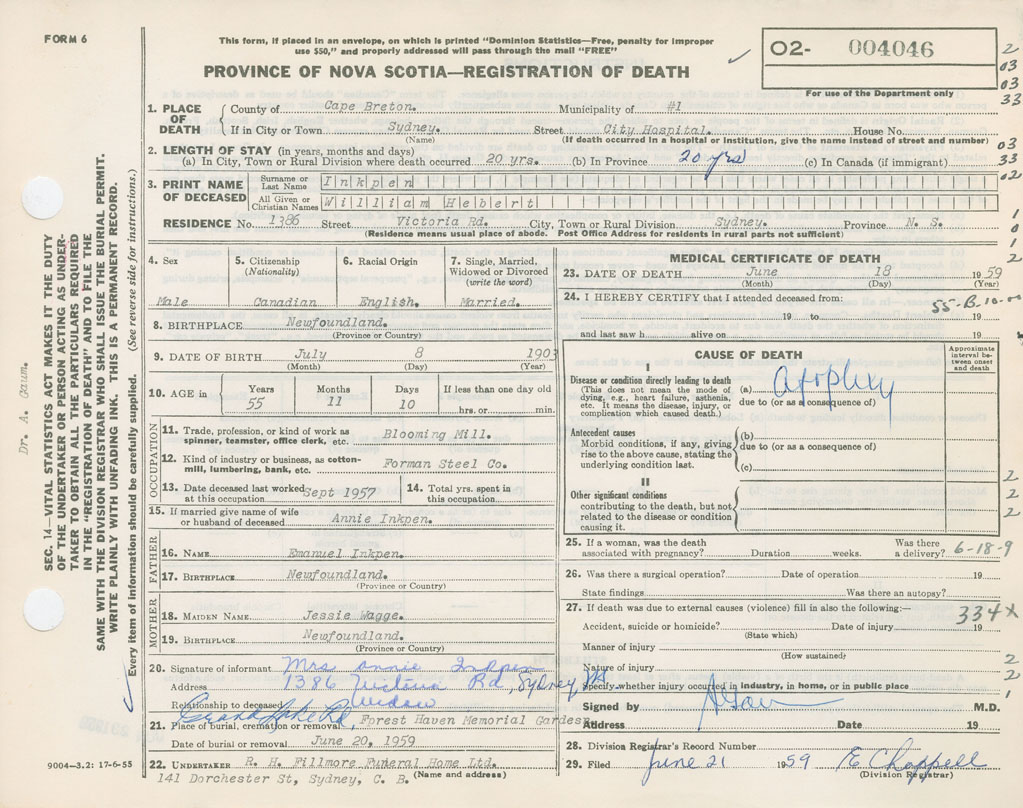 FORM 6
This form, if placed in an envelope, on which is printed "Dominion Statistics—Free, penalty for improper
use $50," and properly addressed will pass through the mail "FREE"
O2- 004046
For use of the Department only
PROVINCE OF NOVA SCOTIA—REGISTRATION OF DEATH
2
03
03
33
03
33
02
1
0
1
2
1. PLACE OF DEATH
County of Cape Breton. Municipality of #1
If in City or Town Sydney. Street City Hospital. House No.
(Name) (If death occurred in a hospital or institution, give the name instead of street and number)
2. LENGTH OF STAY (in years, months and days)
(a) In City, Town or Rural Division where death occurred 20 yrs. (b) In Province 20 yrs (c) In Canada (if immigrant)
3. PRINT NAME OF DECEASED
Surname or Last Name Inkpen
All Given or Christian Names William Hebert
RESIDENCE No. 1386 Street Victoria Rd. City, Town or Rural Division Sydney. Province N. S.
(Residence means usual place of abode. Post Office Address for residents in rural parts not sufficient)
4. Sex
Male
5. Citizenship
(Nationality)
Canadian
6. Racial Origin
English.
7. Single, Married,
Widowed or Divorced
(write the word)
Married.
8. BIRTHPLACE Newfoundland.
(Province or Country)
9. DATE OF BIRTH July 8 1903
(Month) (Day) (Year)
10. AGE in
Years Months Days If less than one day old
55 11 10 hrs. or min.
OCCUPATION
11. Trade, profession, or kind of work as
spinner, teamster, office clerk, etc. Blooming Mill.
12. Kind of industry or business, as cotton-
mill, lumbering, bank, etc. Forman Steel Co.
13. Date deceased last worked
at this occupation Sept 1957
14. Total yrs. spent in
this occupation
15. If married give name of wife
or husband of deceased Annie Inkpen.
FATHER
16. NAME Emanuel Inkpen.
17. BIRTHPLACE Newfoundland.
(Province or Country)
MOTHER
18. MAIDEN NAME Jessie Wagge.
19. BIRTHPLACE Newfoundland.
(Province or Country)
20. Signature of informant Mrs Annie Inkpen
Address 1386 Victoria Rd, Sydney NS
Relationship to deceased Widow
Grand Lake Rd,
21. Place of burial, cremation or removal Forest Haven Memorial Gardens
Date of burial or removal June 20, 1959
22. UNDERTAKER R. H. Fillmore Funeral Home Ltd.
141 Dorchester St, Sydney, C. B. (Name and address)
MEDICAL CERTIFICATE OF DEATH
23. DATE OF DEATH June 18 1959
(Month) (Day) (Year)
24. I HEREBY CERTIFY that I attended deceased from:
55-B-10-00
19 to 19
and last saw h alive on 19
CAUSE OF DEATH
Approximate
interval be-
tween onset
and death
I
Disease or condition directly leading to death
(This does not mean the mode of
dying, e.g., heart failure, asthenia,
etc. It means the disease, injury, or
complication which caused death.)
(a)
due to (or as a consequence of)
Antecedent causes
Morbid conditions, if any, giving
rise to the above cause, stating the
underlying condition last.
(b)
due to (or as a consequence of)
(c)
II
Other significant conditions
contributing to the death, but not
related to the disease or condition
causing it.
2
2
2
25. If a woman, was the death
associated with pregnancy? Duration weeks. Was there
a delivery? 6-18-9
26. Was there a surgical operation? Date of operation 19
State findings Was there an autopsy?
27. If death was due to external causes (violence) fill in also the following:—
334X
Accident, suicide or homicide? Date of injury 19
(State which)
Manner of injury
(How sustained)
Nature of injury
Specify whether injury occurred in industry, in home, or in public place
2
2
1
Signed by M.D.
Address Date 19
28. Division Registrar's Record Number
29. Filed June 21 1959 E Chappell
(Division Registrar)
Dr. A. Gaum.
SEC. 14—VITAL STATISTICS ACT MAKES IT THE DUTY
OF THE UNDERTAKER OR PERSON ACTING AS UNDER-
TAKER TO OBTAIN ALL THE PARTICULARS REQUIRED
IN THE "REGISTRATION OF DEATH" AND TO FILE THE
SAME WITH THE DIVISION REGISTRAR WHO SHALL ISSUE THE BURIAL PERMIT.
WRITE PLAINLY WITH UNFADING INK. THIS IS A PERMANENT RECORD.
Every item of information should be carefully supplied. (See reverse side for instructions.)
9004—3.2: 17-6-55